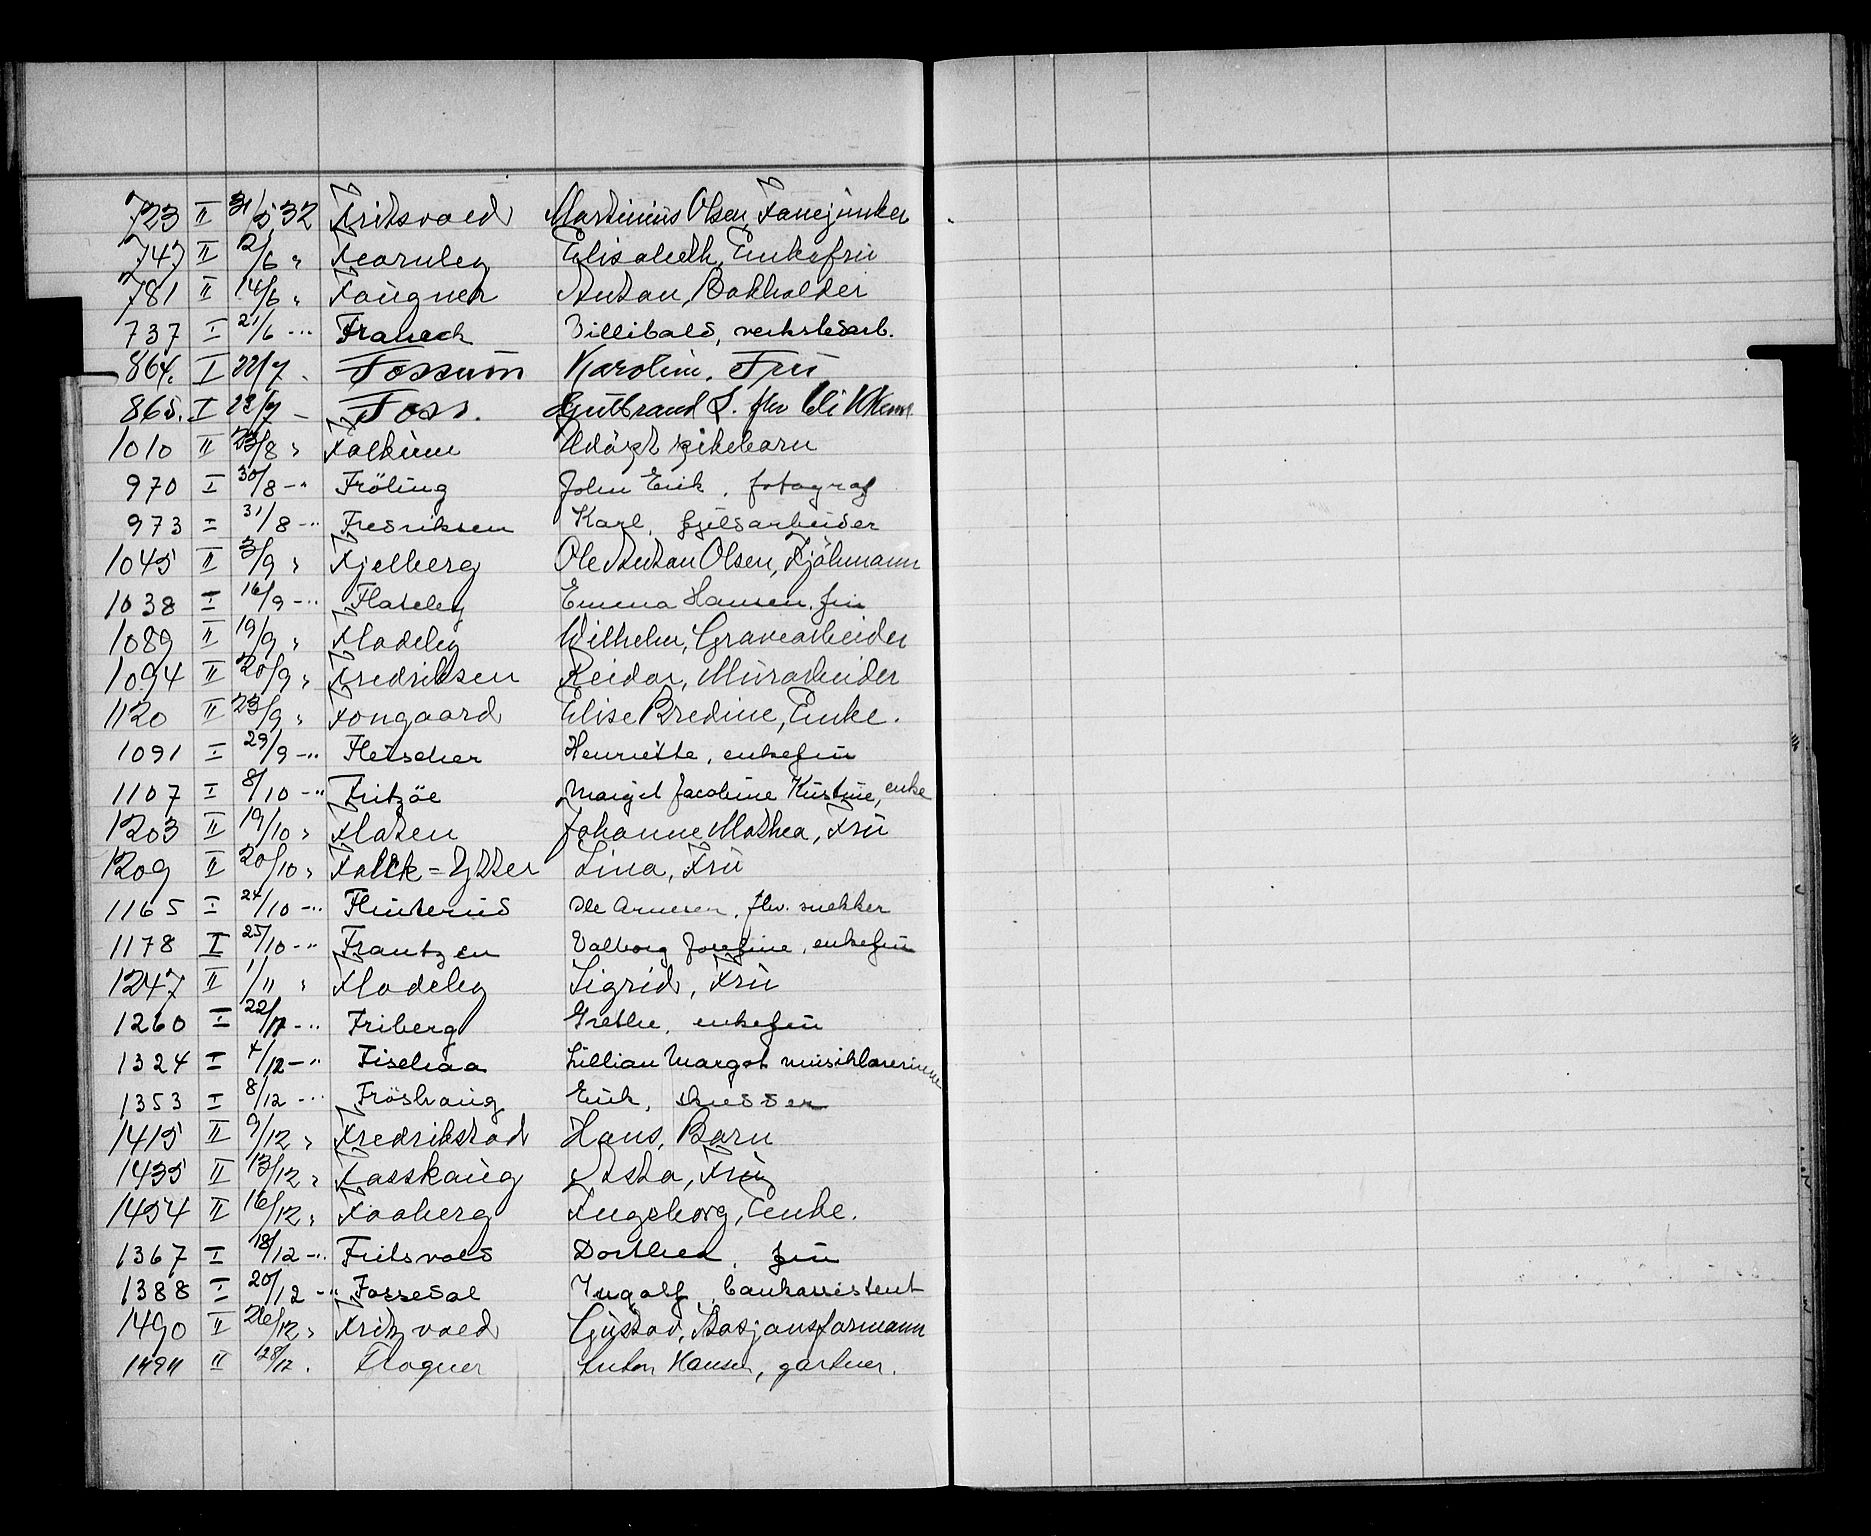 723 II 31/5 32 Fritsvold Martinius Olsen, Fanejunker
747 II 2/6 " Fearnley Elisabeth, Enkefru
781 II 14/6 " Faugner Anton, Bokholder
737 I 21/6 -" Franeck Villibald, verkstedarb.
864. I 22/7 Fossum Karolin. Fru
865. I 23/7 - Foss. Gutbrand L. fhv
1010 II 23/8 " Falkum Udöpt pikebarn
970 I 30/8 -" Fröling John Erik, fotograf
973 I 31/8 -" Fredriksen Karl,
1045 II 3/9 " Fjelberg Ole Anton Olsen, Sjömann
1038 I 16/9 -" Flateby Emma Hansen, fru
1089 II 19/9 " Fladeby Wilhelm, Gravearbeider
1094 II 20/9 " Fredriksen Reidar, Murarbeider
1120 II 23/9 " Fongaard Elise Bredine, Enke.
1091 I 29/9 -" Fleischer Henriette, enkefru
1107 I 8/10 -" Fritzöe Margit Jacobine Kristine, enke
1203 II 19/10 " Flaten Johanne Mathea, Fru
1209 II 20/10 " Falck=Ytter Lina, Fru
1165 I 24/10 -" Flinterud Ole Arnesen, fhv. snekker
1178 I 25/10 -" Frantzen Valborg Josefine, enkefru
1247 II 1/11 " Fladeby Sigrid, Fru
1260 I 22/11 -" Friberg Grethe, enkefru
1324 I 4/12 -" Fiskaa Lillian Margot musiklærerinne
1353 I 8/12 -" Fröshaug Erik,
1415 II 9/12 " Fredrikstad Hans, Barn
1435 II 13/12 " Fasskaug Asta, Fru
1454 II 16/12 " Faaberg Ingeborg, Enke.
1367 I 18/12 -" Fritsvold Dorthea, fru
1388 I 20/12 -" Fossedal Ingolf, bankassistent
1490 II 26/12 " Fritzvold Gustav, Stasjonsformann
1494 II 28/12. Flogner Anton Hansen, gartner.